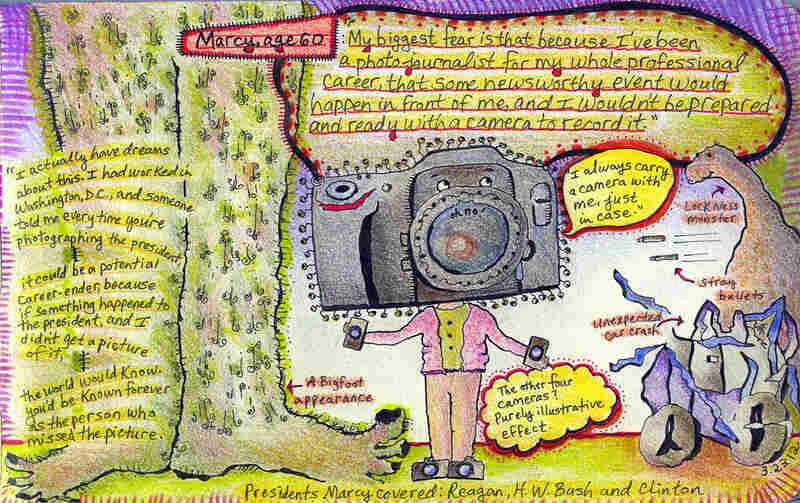 Marcy, age 60:
"My biggest fear is that because I've been
a photojournalist for my whole professional
career, that some newsworthy event would
happen in front of me, and I wouldn't be prepared
and ready with a camera to record it."
"I actually have dreams
about this. I had worked in
Washington, D.C., and someone
told me every time you're
photographing the president
it could be a potential
career-ender, because
if something happened to
the president, and I
didn't get a picture
of it,
the world would know.
you'd be known forever
as the person who
missed the picture.
oh no!
I always carry
a camera with
me, just
in case.
Lock Ness
monster
Stray
bullets
Unexpected
car crash
A Bigfoot
appearance
The other four
cameras?
Purely illustrative
effect.
Presidents Marcy covered: Reagan, H.W. Bush and Clinton